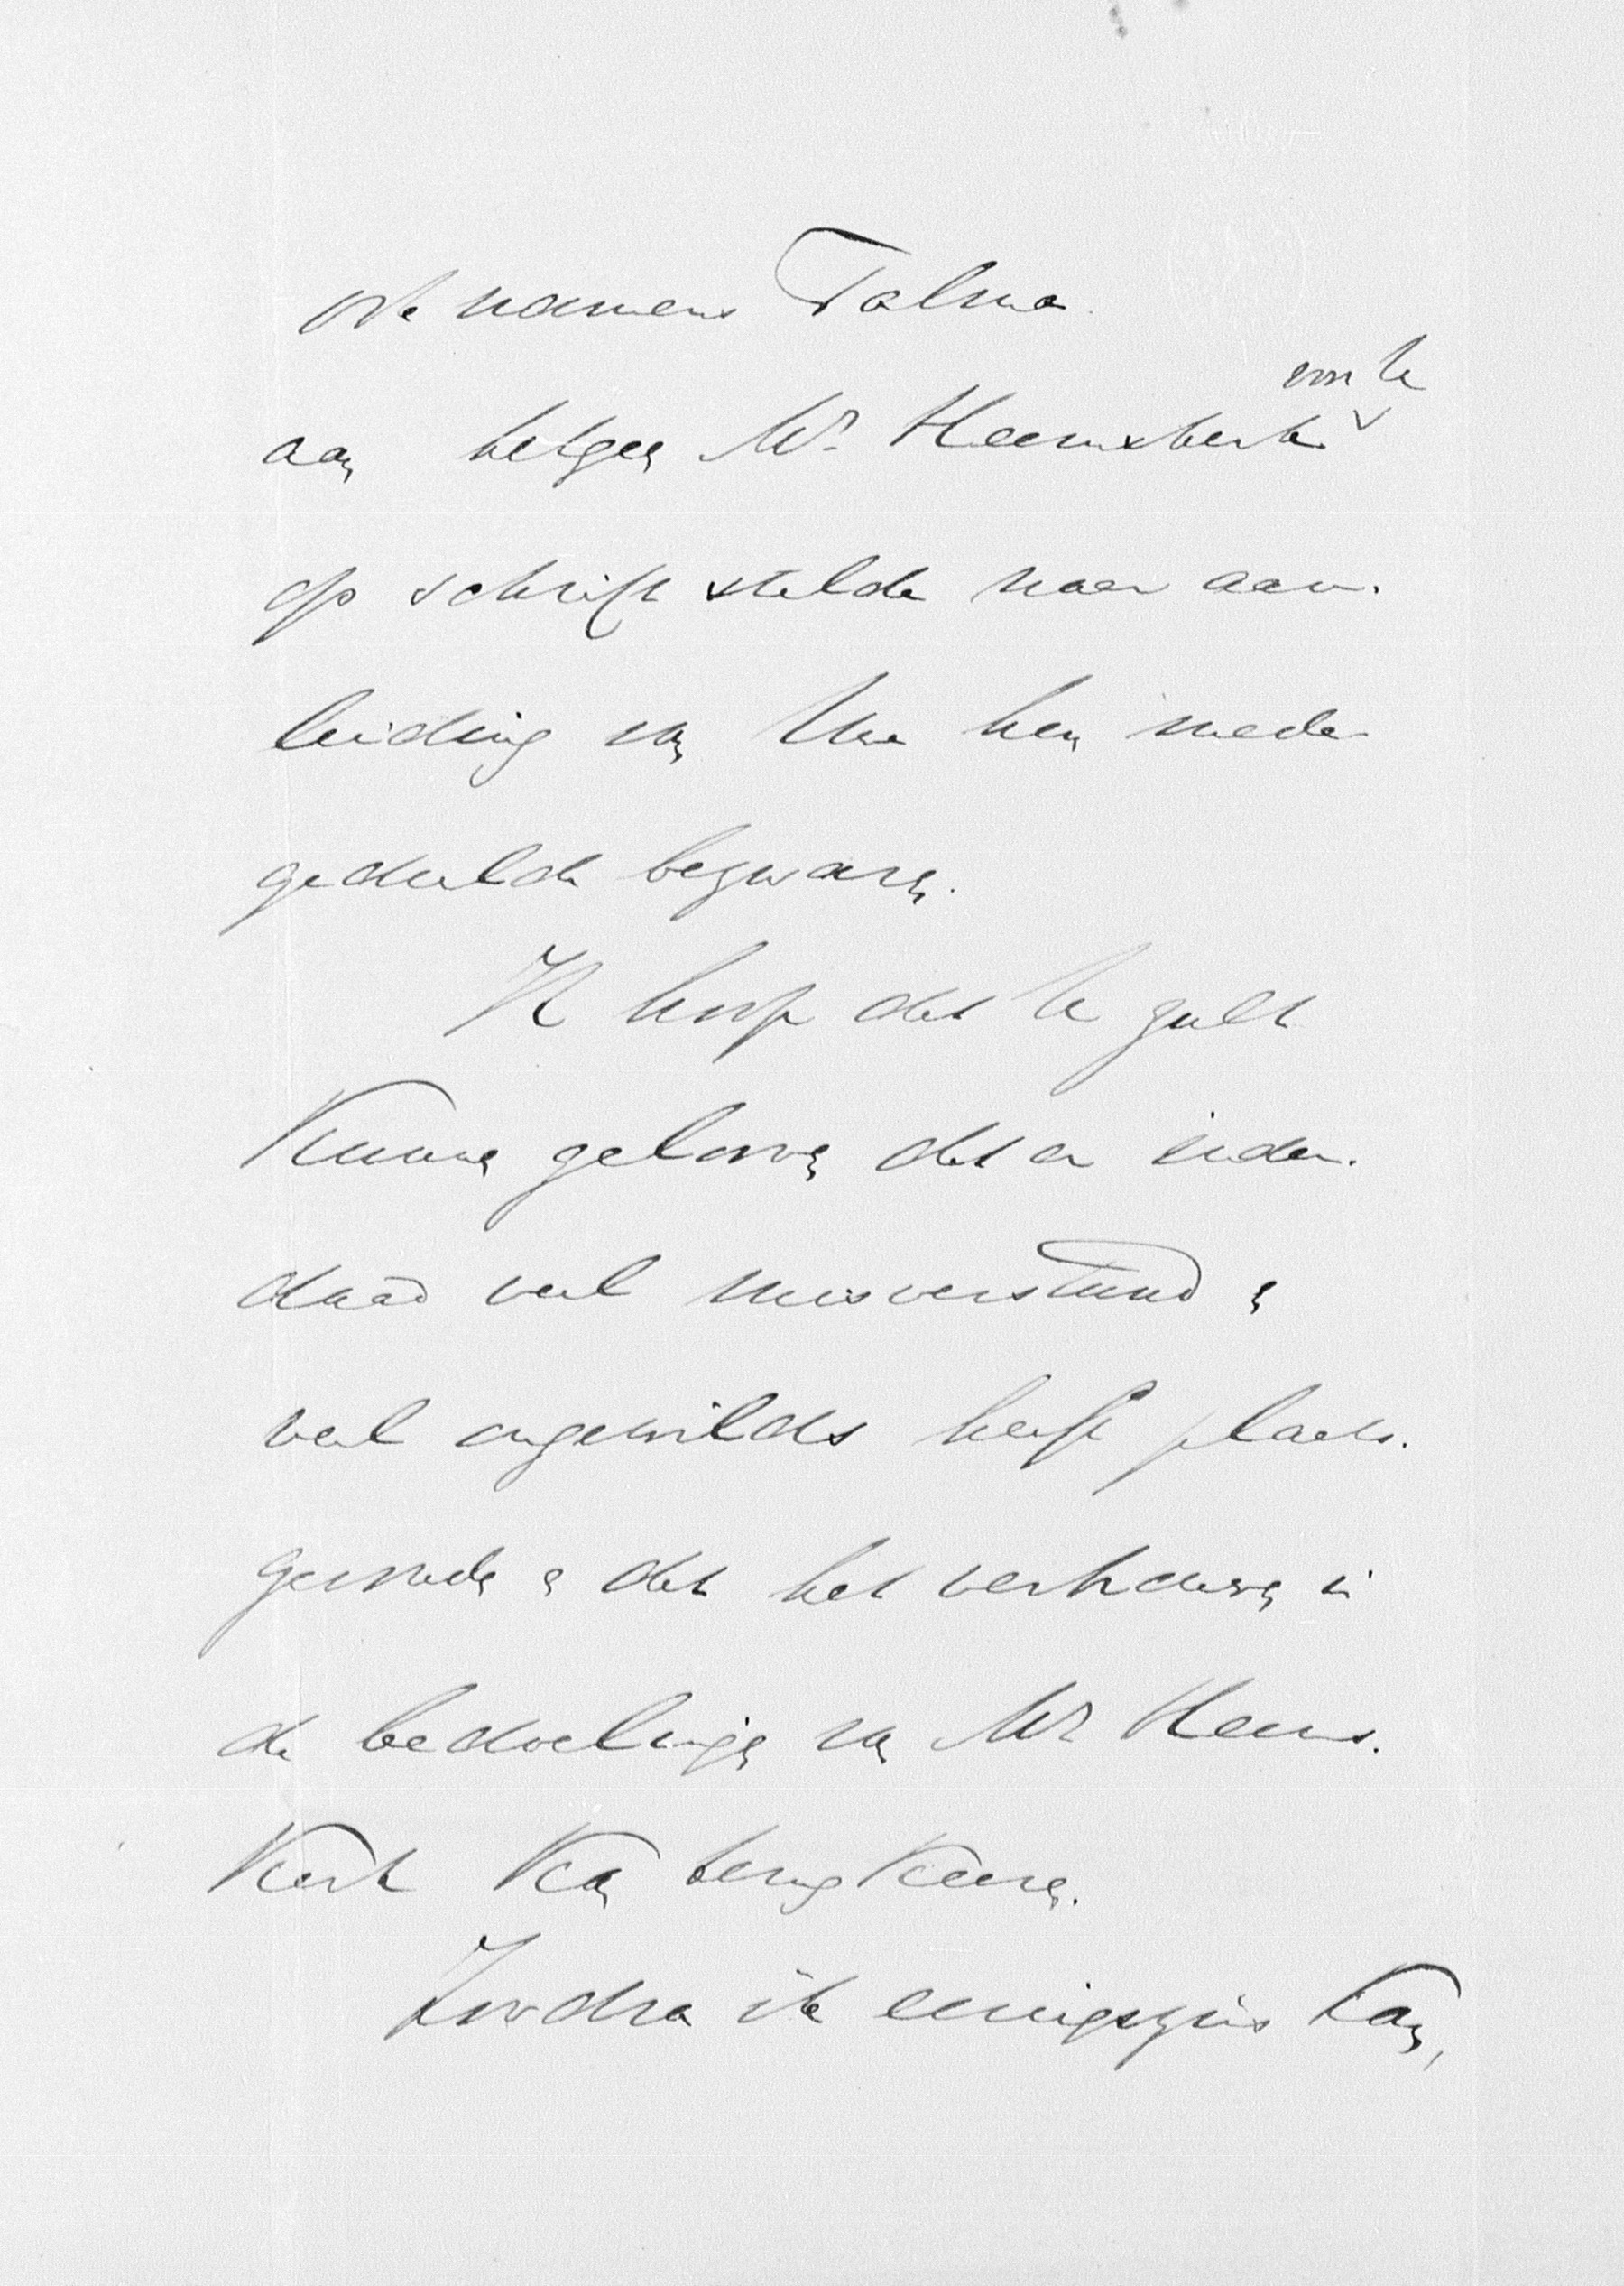 ook namens Talma
voor U
aan hetgeen Mr. Heemskerk
op schrift stelde naar aan-
leiding van Uw hem mede-
gedeelde bezwaren.
Ik hoop dat U zult
kunnen gelooven dat er inder-
daad veel misverstand en
veel ongewilds heeft plaats-
gevonden en dat het vertrouwen in
de bedoelingen van Mr Heems-
kerk kan terugkeeren.
Zoodra ik eenigszins kan,